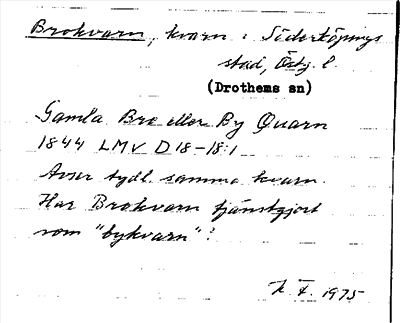 Brokvarn, kvarn i Söderköpings
stad, Östg. l.
(Drothems sn)
Gamla Bro eller By Quarn
1844 LMV D 18-18:1
Avser tydl. samma kvarn.
Har Brokvarn tjänstgjort
som "bykvarn"?
1975